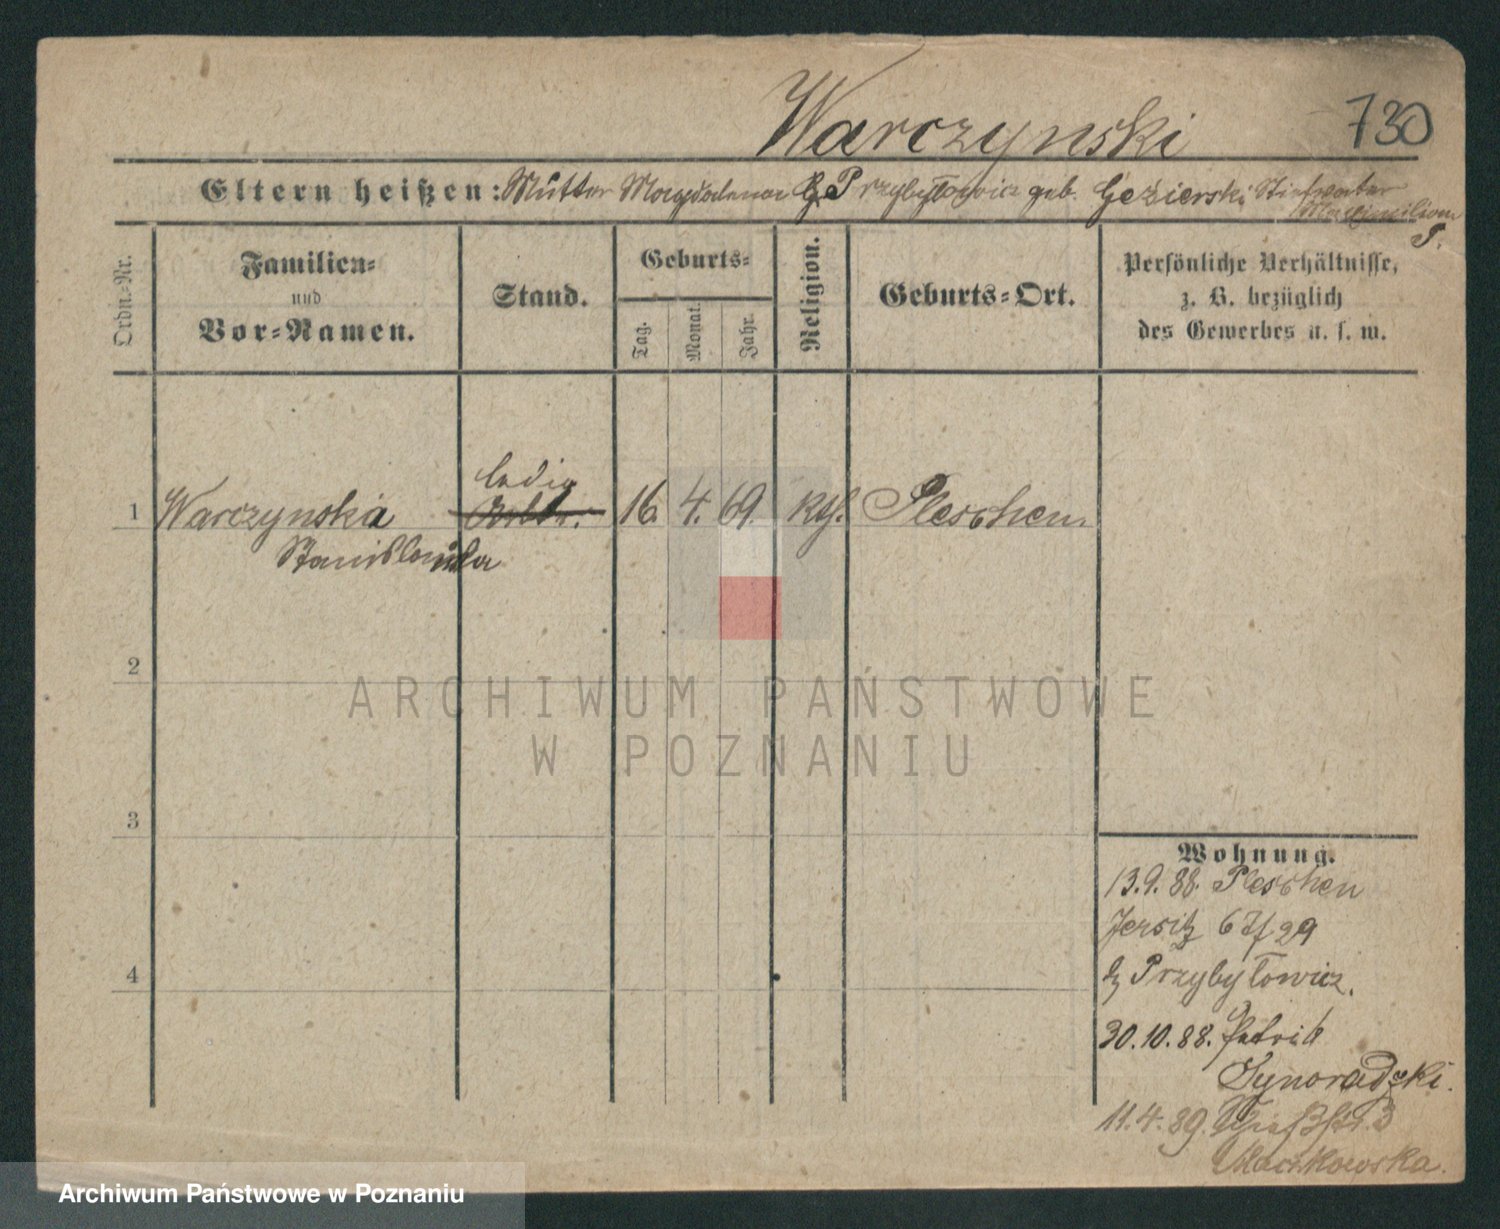 Warczynski
730
Eltern heißen: Mutter Magdalena Przybyłowicz geb. Geżierski Stiefvater
Maximilian
P.
Ordn.-Nr.
Familien-
und
Vor-Namen.
Stand.
Geburts-
Tag.
Monat.
Jahr.
Religion.
Geburts-Ort.
Persönliche Verhältnisse,
z. B. bezüglich
des Gewerbes u. s. w.
ledig
1 Warczynska Arbtr. 16. 4. 69. kth. Pleschen
Stanislawa
2
ARCHIWUM PAŃSTWOWE
W POZNANIU
3
4
Wohnung.
13.9.88. Pleschen
Jersitz 67/29
Przybyłowicz.
30.10.88.
Synoradzki.
11.4.89. Schießstr. 3
Mackowska.
Archiwum Państwowe w Poznaniu